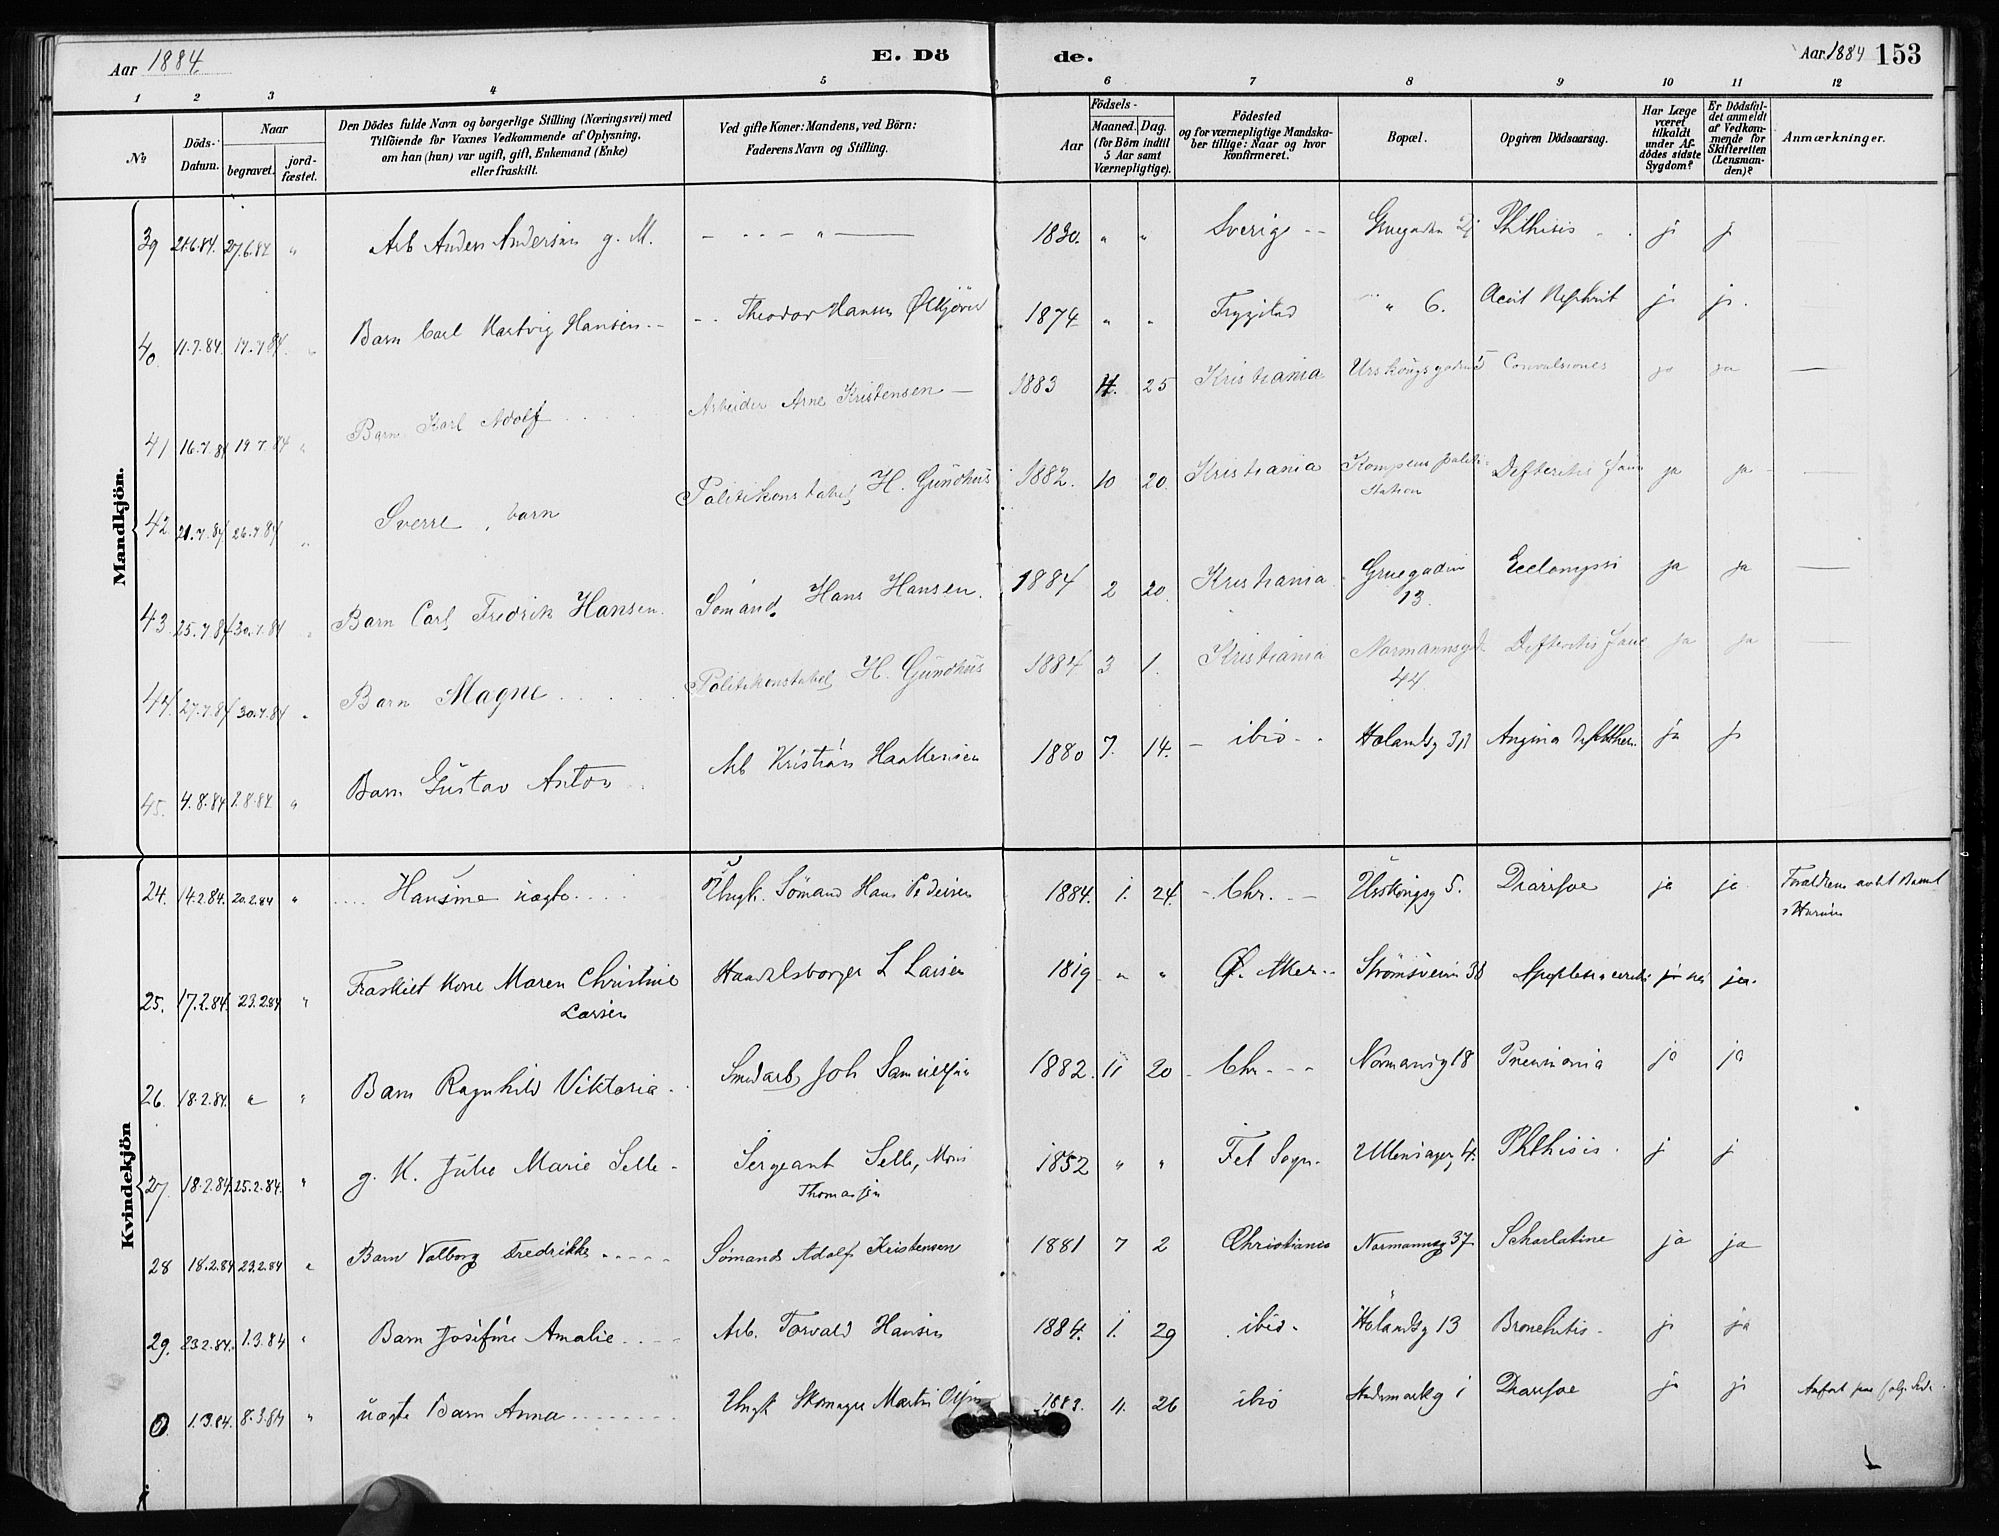 Aar 1884
E. Döde.
Aar 1884 153
1 2 3 4 5 6 7 8 9 10 11 12
No
Döds-Datum.
Naar
begravet.
jord-fæstet.
Den Dödes fulde Navn og borgerlige Stilling (Næringsvei) med
Tilföiende for Voxnes Vedkommende af Oplysning,
om han (hun) var ugift, gift, Enkemand (Enke)
eller fraskilt.
Ved gifte Koner: Mandens, ved Börn:
Faderens Navn og Stilling.
Födsels-
Aar
Maaned. Dag.
(for Börn indtil
5 Aar samt
Værnepligtige).
Födested
og for værnepligtige Mandska-
ber tillige: Naar og hvor
konfirmeret.
Bopæl.
Opgiven Dödsaarsag.
Har Læge
været
tilkaldt
under Af-
dödes sidste
Sygdom?
Er Dödsfal-
det anmeldt
af Vedkom-
mende for
Skifteretten
(Lensman-
den)?
Anmærkninger.
Mandkjön.
39 21.6.84. 27.6.84 " Arb Anders Andersen g. M. - - - " - 1830. " " Sverige - - Gruegaden Phthisis - . ja ja
40 11.7.84. 17.7.84. " Barn Carl Hartvig Hansen - - - - Theodor Hansen Ølkjører 1874 " " Trygstad " 6. Acut Nephrit ja ja.
41 16.7.84 19.7.84 " Barn Karl Adolf Arbeider Arne Kristensen - 1883 4. 25 Kristiania Urskougsgaden 5 Convulsiones ja ja -
42 21.7.84 26.7.84 " Sverre, barn Politikonstabel H. Gundhus 1882. 10 20. Kristiania Kampens politi-
Station Defteritis fauc ja ja -
43. 25.7.84 30.7.84 " Barn Carl Fredrik Hansen. Sömand. Hans Hansen. 1884 2 20. Kristiania Gruegaden
13. Eclampsi ja ja -
44. 27.7.84 30.7.84 " Barn Magne Politikonstabel H. Gundhus 1884 3 1. Kristiania Normannsgd.
44. Defteritis fauc ja ja -
45. 4.8.84 8.84 " Barn Gustav Anton Arb Kristian Haakensen 1880 7. 14. - ibid - . Hølandsg Angina Diphther. ja ja
Kvindekjön
24. 14.2.84. 20.2.84 " Hansine uægte Ungk. Sömand Hans Pedersen 1884. 1. 24. - Chr. - - Urskougsg 5. Diarrhoe ja ja
25. 17.2.84. 23.2.84 " Fraskilt Kone Maren Christine
Larsen Handelsborger L Larsen 1819 " " Ø. Aker - - Strömsveien Apoplexia cerebri ja.
26. 18.2.84. " " Barn Ragnhild Viktoria - Smedarb Joh Samuelsen 1882. 11 20 - Chr - - - Normansg 18 Pneumonia ja ja
27. 18.2.84. 25.2.84. " g. K. Julie Marie Selle - Sergeant Selle, Mons
Thomassen 1852 " " Fet Sogn. Ullensagerg 4. Phthisis. ja ja
28 18.2.84 23.2.84 " Barn Valborg Fredrikke - - - - Sömand Adolf Kristensen 1881 7 2 Christiania Normannsg 37 Scharlatine ja ja
29. 23.2.84. 1.3.84 " Barn Josefine Amalie - - - Arb. Torvald Hansen 1884. 1. 29 ibid - Hølandsg 13 Bronchitis - ja ja
1.3.84. 8.3.84 " uægte Barn Anna - - - - - Ungk Skomager Martin Olsen 1883. 4. 26 ibid Hedemarksg 1 Diarrhoe ja ja